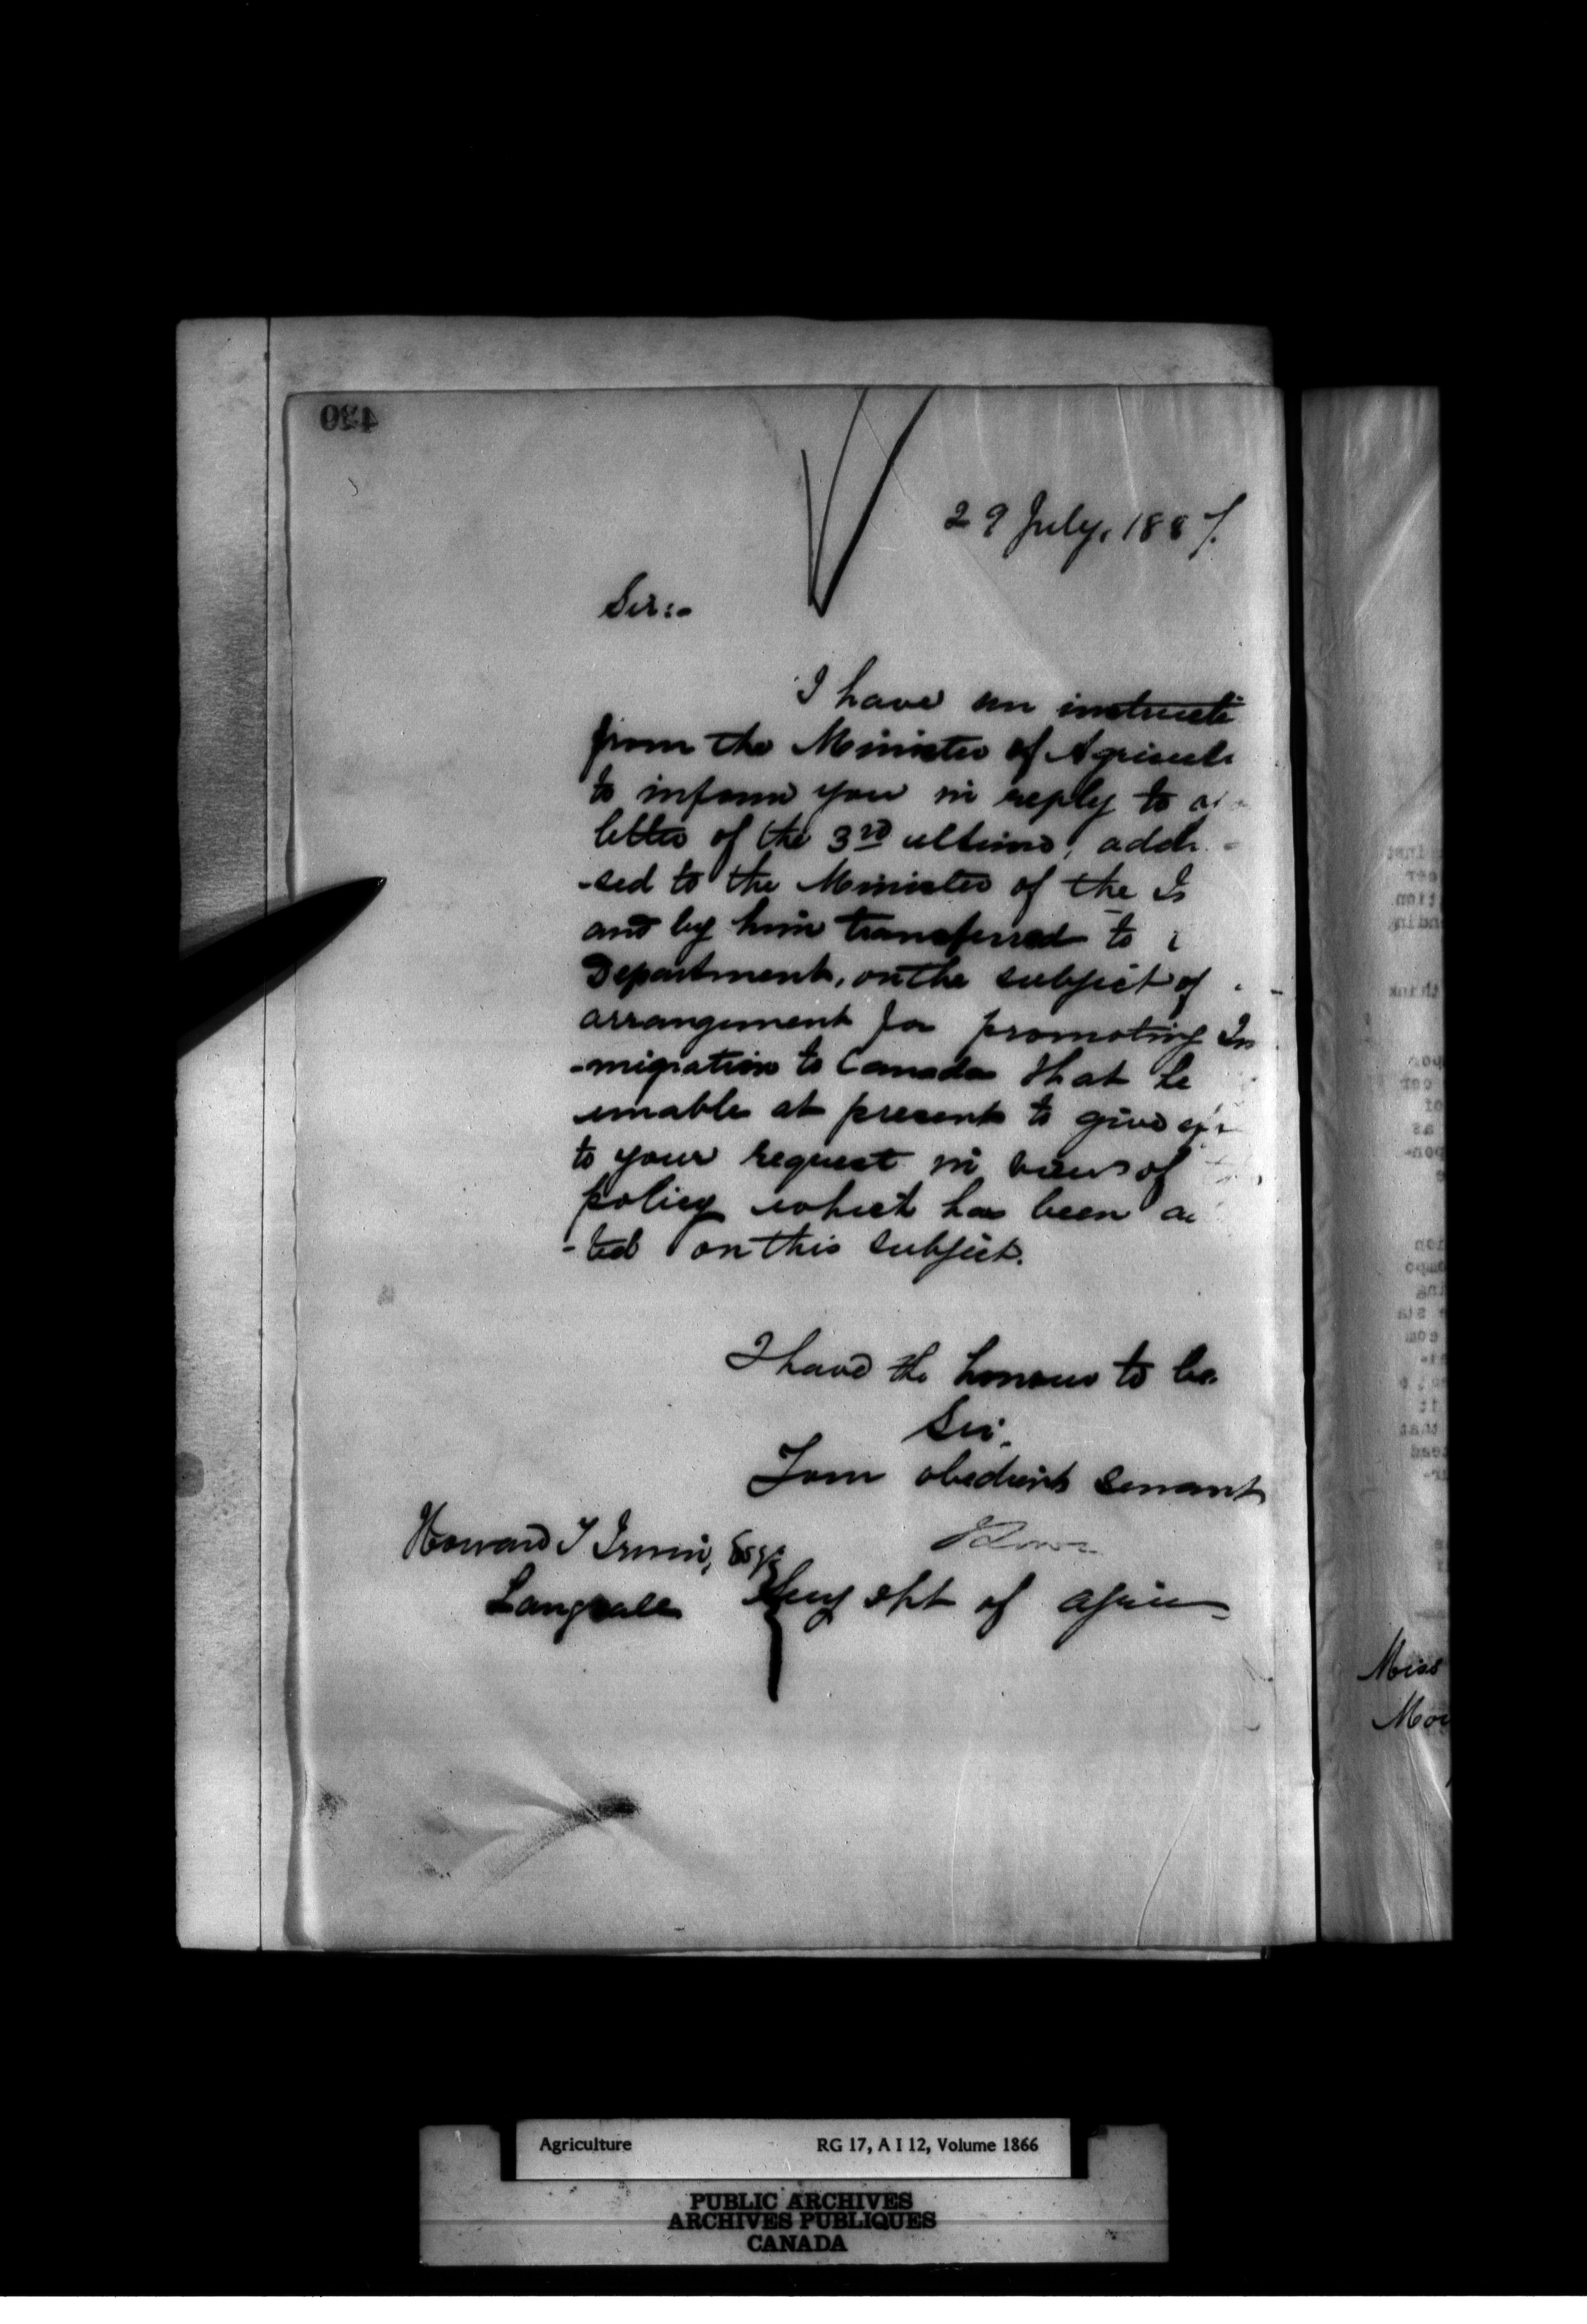 430
29 July, 1887.
Sir:-
I have an instructi
from the Minister of Agricult
to inform you in reply to
letter of the 3rd ultimo, addr
-sed to the Minister of the
and by him transferred to
Department, on the subject of
arrangement for promoting Im
-migration to Canada that he
unable at present to give
to your request in view of
policy which has been
-ted on this subject.
I have the honour to be
Sir,
Your obedient servant
Howard T Irwin, Esqr
Secy Dpt of Agric
Miss
Agriculture RG 17, A I 12, Volume 1866
PUBLIC ARCHIVES
ARCHIVES PUBLIQUES
CANADA